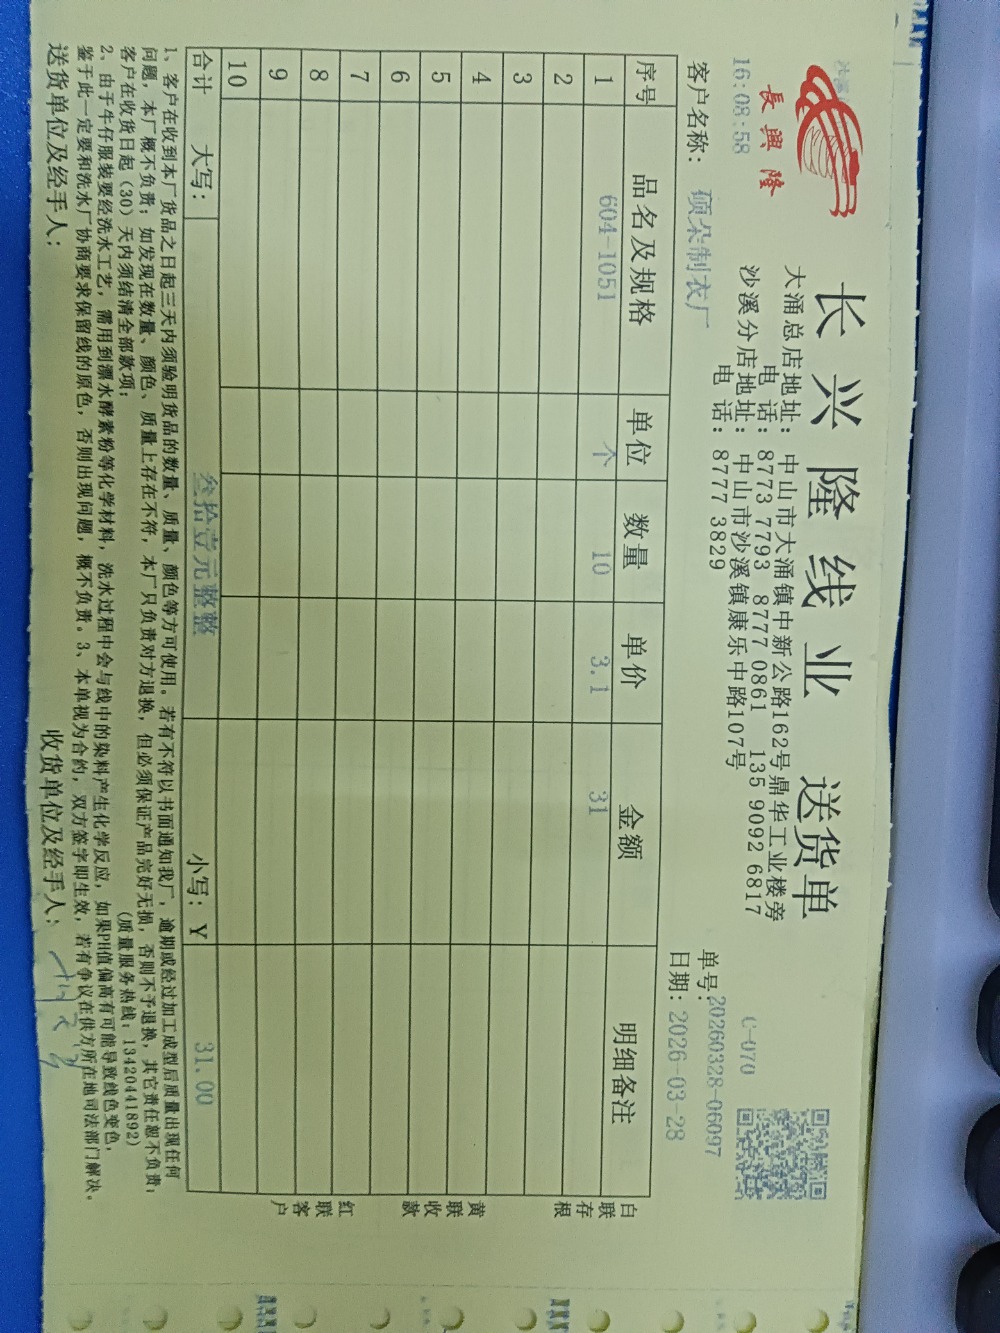 沙溪
長興隆
16:08:58
长兴隆线业 送货单
大涌总店地址：中山市大涌镇中新公路162号鼎华工业楼旁
电 话：8773 7793 8777 0861 135 9092 6817
沙溪分店地址：中山市沙溪镇康乐中路107号
电 话：8777 3829
C-070
单号：20260328-06097
客户名称：硕朵制衣厂
日期：2026-03-28
序号 品名及规格 单位 数量 单价 金额 明细备注
1 604-1051 个 10 3.1 31
2
3
4
5
6
7
8
9
10
合计 大写： 叁拾壹元整整 小写：¥ 31.00
白联存根
黄联收款
红联客户
1、客户在收到本厂货品之日起三天内须验明货品的数量、质量、颜色等方可使用。若有不符以书面通知我厂，逾期或经过加工成型后质量出现任何
问题，本厂概不负责；如发现在数量、颜色、质量上存在不符，本厂只负责对方退换，但必须保证产品完好无损，否则不予退换，其它责任恕不负责；
客户在收货日起（30）天内须结清全部款项； （质量服务热线：13420441892）
2、由于牛仔服装要经洗水工艺，需用到漂水酵素粉等化学材料，洗水过程中会与线中的染料产生化学反应，如果PH值偏高有可能导致线色变色，
鉴于此一定要和洗水厂协商要求保留线的原色，否则出现问题，概不负责。3、本单视为合约，双方签字即生效，若有争议在供方所在地司法部门解决。
送货单位及经手人： 收货单位及经手人：